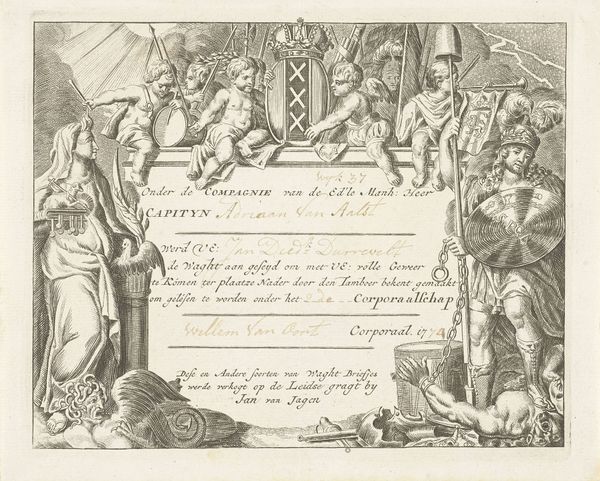 Wyk 37
Onder de COMPAGNIE van de Ed'le Manh: Heer
CAPITYN Adriaan Van Aalst
Word UE: Jan Died.k Durrevelt
de Waght aan geseyd om met UE: volle Geweer
te Komen ter plaatze Nader door den Tamboer bekent gemaakt
om gelesen te worden onder het 2de Corporaalschap
Willem Van Oort Corporaal. 177
Dese en Andere soorten van Waght Briefjes
werde verkogt op de Leidse gragt by
Jan van Jagen